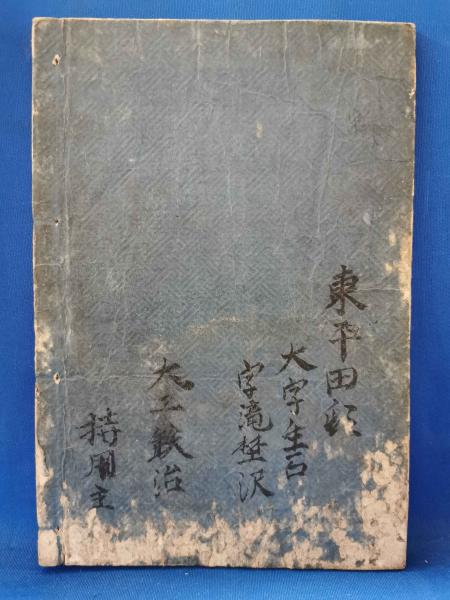 東平田村
大字生石
字滝埜沢
大工鉄治
持用主